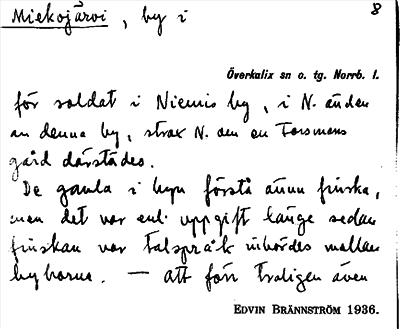 Miekojärvi, by i 8
Överkalix sn o. tg. Norrb. l.
för soldat i Niemis by, i N. änden
av denna by, strax N. om en Forsmans
gård därstädes.
De gamla i byn förstå ännu finska,
men det var enl. uppgift länge sedan
finskan var talspråk inbördes mellan
byborna. — Att förr troligen även
EDVIN BRÄNNSTRÖM 1936.